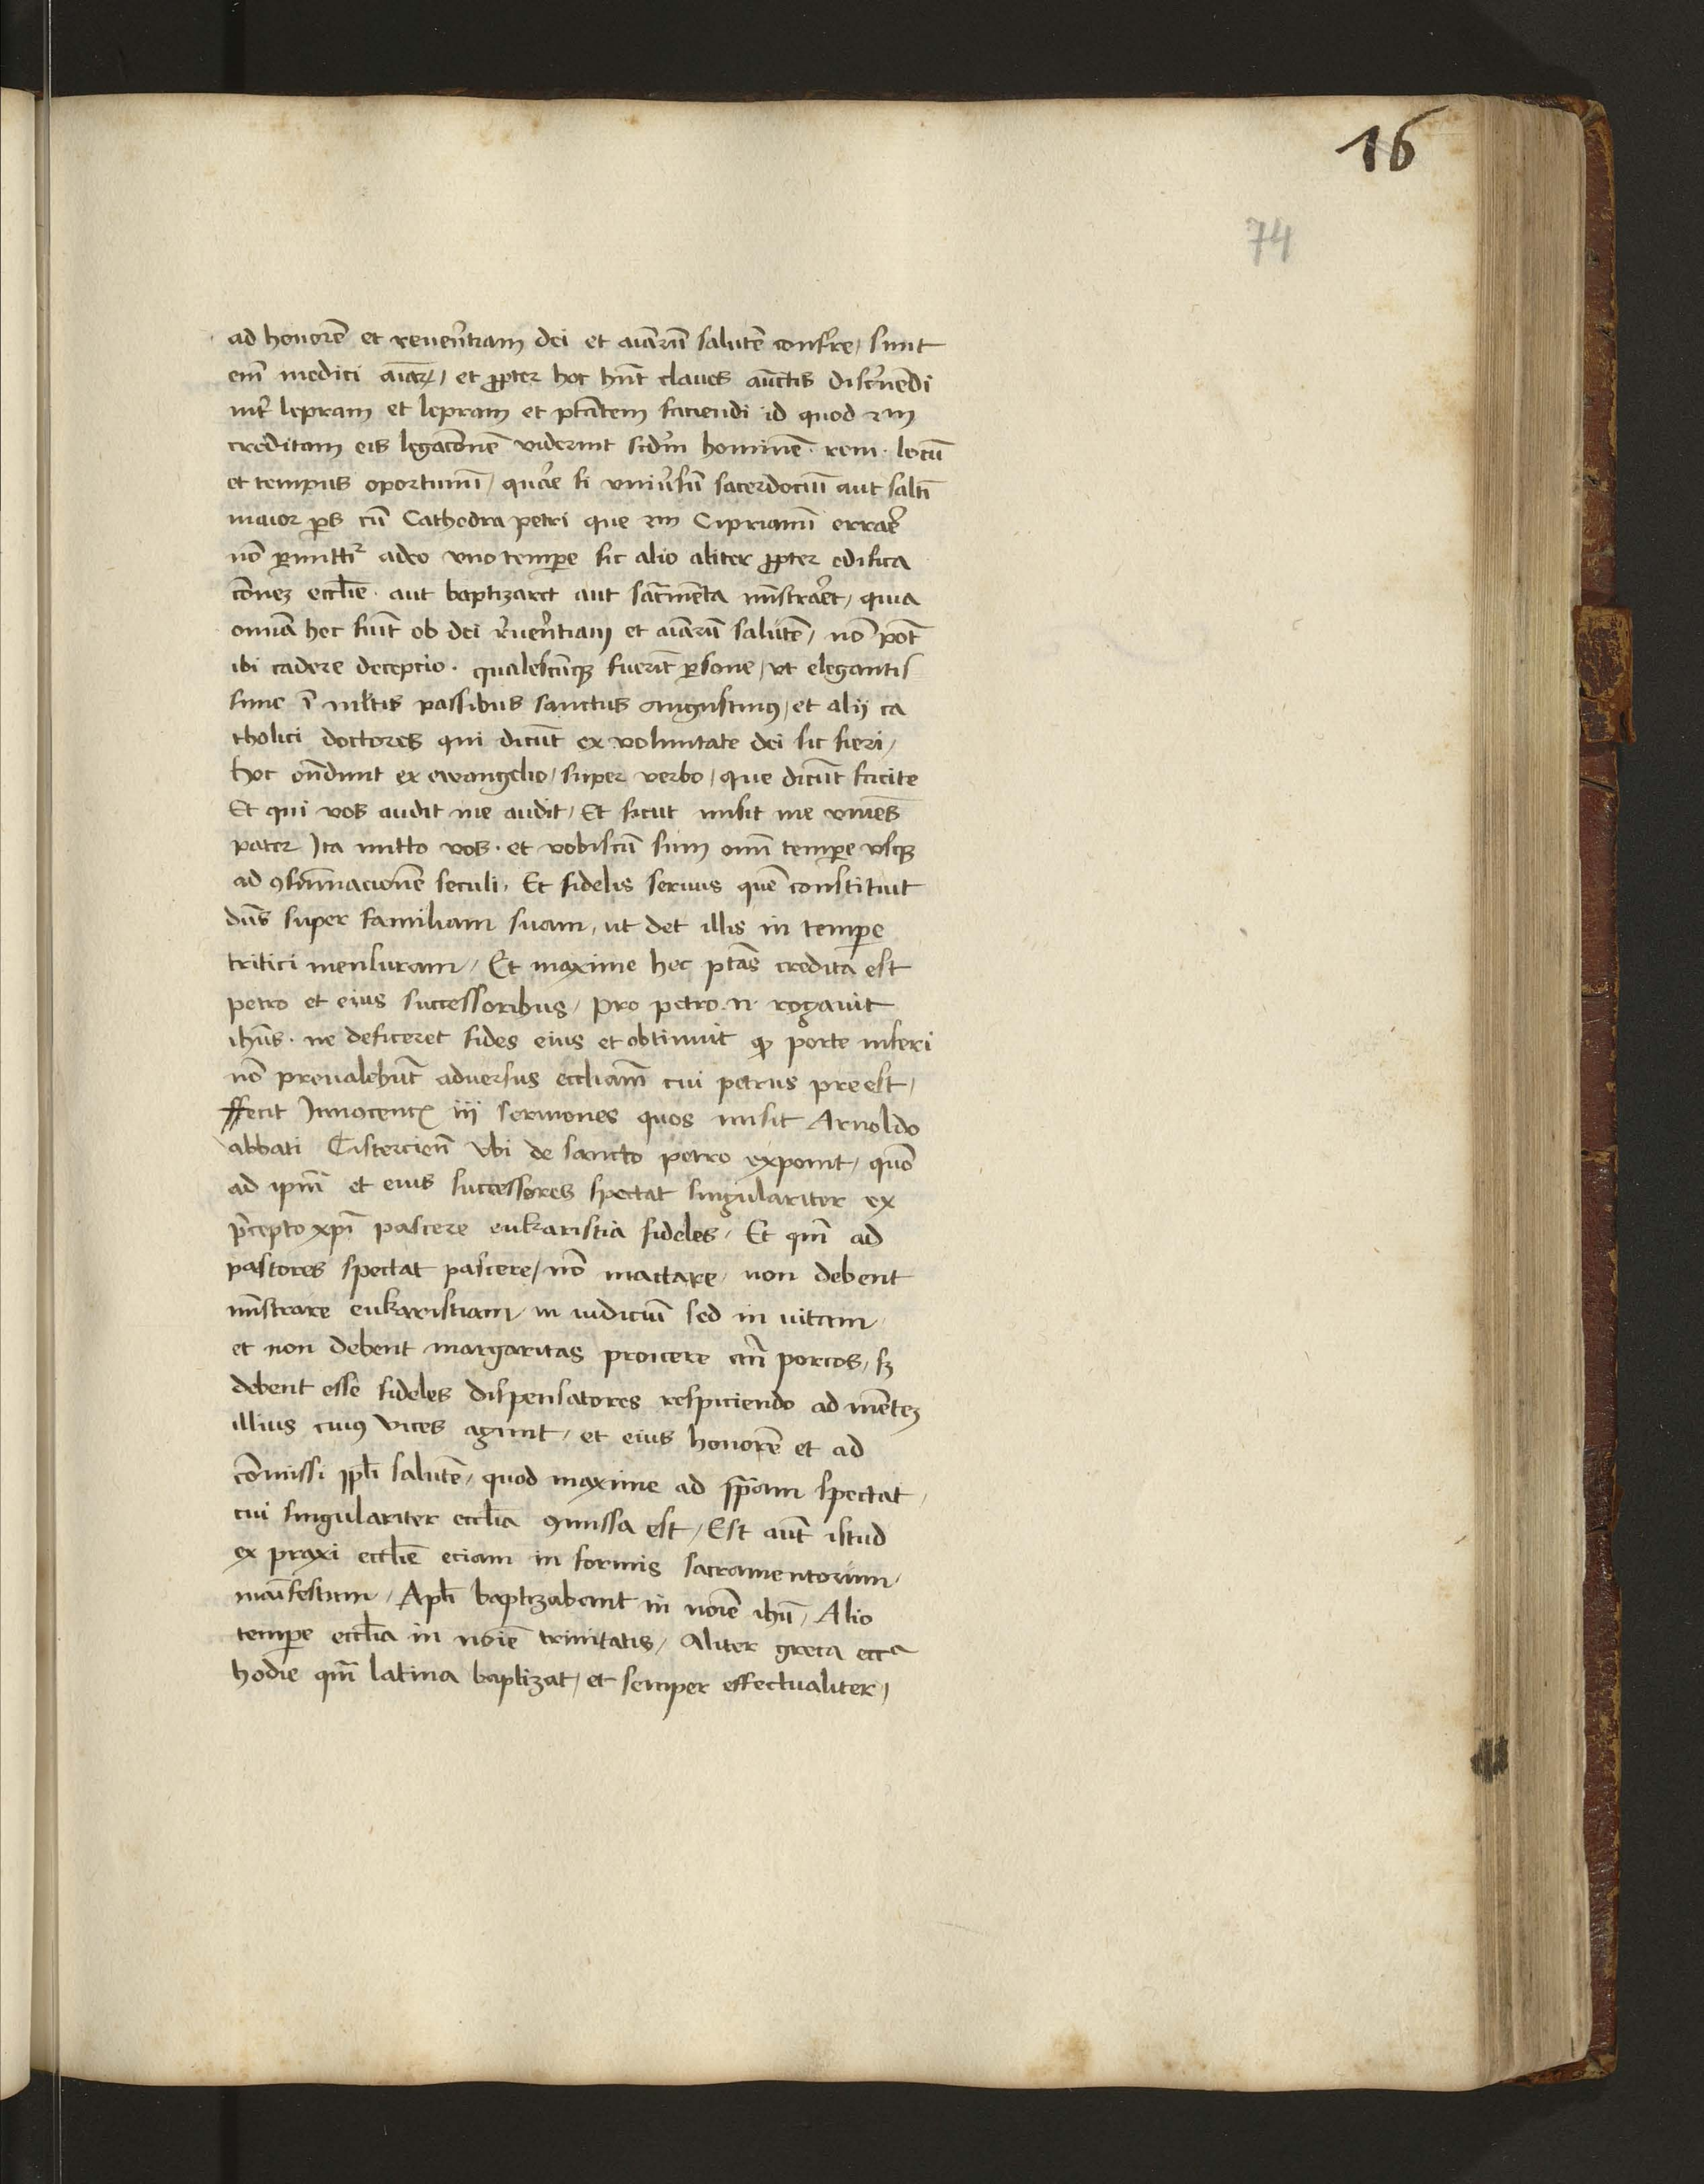 16
74
ad honorē et reuer̄tiam dei et aīarū salutē confer̄re / sunt
em̄ medici aīarꝝ / et ꝓpter hoc hn̄t claues auct̄is disc̄nendi
int̄ lepram et lepram et ptātem faciendi id quod
creditam eis legac̄onē viderint scd̄m hominē · rem · locū
et tempus oportunū / quar̄e si vniu̓sū sacerdociū aut saltī
maior ꝑs cū Cathedra petri que Ciprianū errar̄e
nō ꝑmittit᷑ adeo vno tempe sic alio aliter ꝓpter edifica
c̄onez eccl̄ie · aut baptizaret aut sac̄menta mīstrar̄et / quia
omīa hec siūt ob dei r̓uer̄ntiam et aīarū salutē / nō pōt
ibi cadere deceptio · qualescūqꝫ fuerīt ꝑsone / vt elegantis
sime ī ml̄tis passibus sanctus augustinꝰ / et alij ca
tholici doctores qui dicūt ex voluntate dei sic fieri /
hoc on̄dunt ex ewangelio / super verbo / que dicūt facite
Et qui vos audit me audit / Et sicut misit me viuēs
pater Ita mitto vos · et vobiscū sum om̄i tempe vsqꝫ
ad ꝯsūmacionē seculi / Et fidelis seruus quē constituit
dn̄s super familiam suam / ut det illis in tempe
tritici mensuram / Et maxime hec ptās credita est
petro et eius successoribus / pro petro · n · rogauit
ihūs · ne deficeret fides eius et obtinuit ꝙ porte inferi
nō preualebūt aduersus eccl̄iam cui petrus preest /
ffecit Innocenc̄ iij sermones quos misit Arnoldo
abbati Cistercien̄ Vbi de sancto petro exponit / quō
ad ip̄m et eius successores spectat singulariter ex
p̄cepto xp̄i pascere eukaristia fideles / Et qm̄ ad
pastores spectat pascere / nō mactare / non debent
mīstrare eukaristiam / in iudiciū sed in uitam /
et non debent margaritas proicere an̄ porcos / sꝫ
debent esse fideles dispensatores respiciendo ad mētez
illius cuiꝰ vices agunt / et eius honorē et ad
cōmissi ppl̄i salutē / quod maxime ad spectat /
cui singulariter eccl̄ia ꝯmissa est / Est aūt istud
ex praxi eccl̄ie eciam in formis sacramentorum /
maīfestum / Apl̄i baptizabant in noīe ihū / Alio
tempe eccl̄ia in noīe trinitatis / aliter greca ecc̄a
hodie qm̄ latina baptizat / et semper effectualiter /